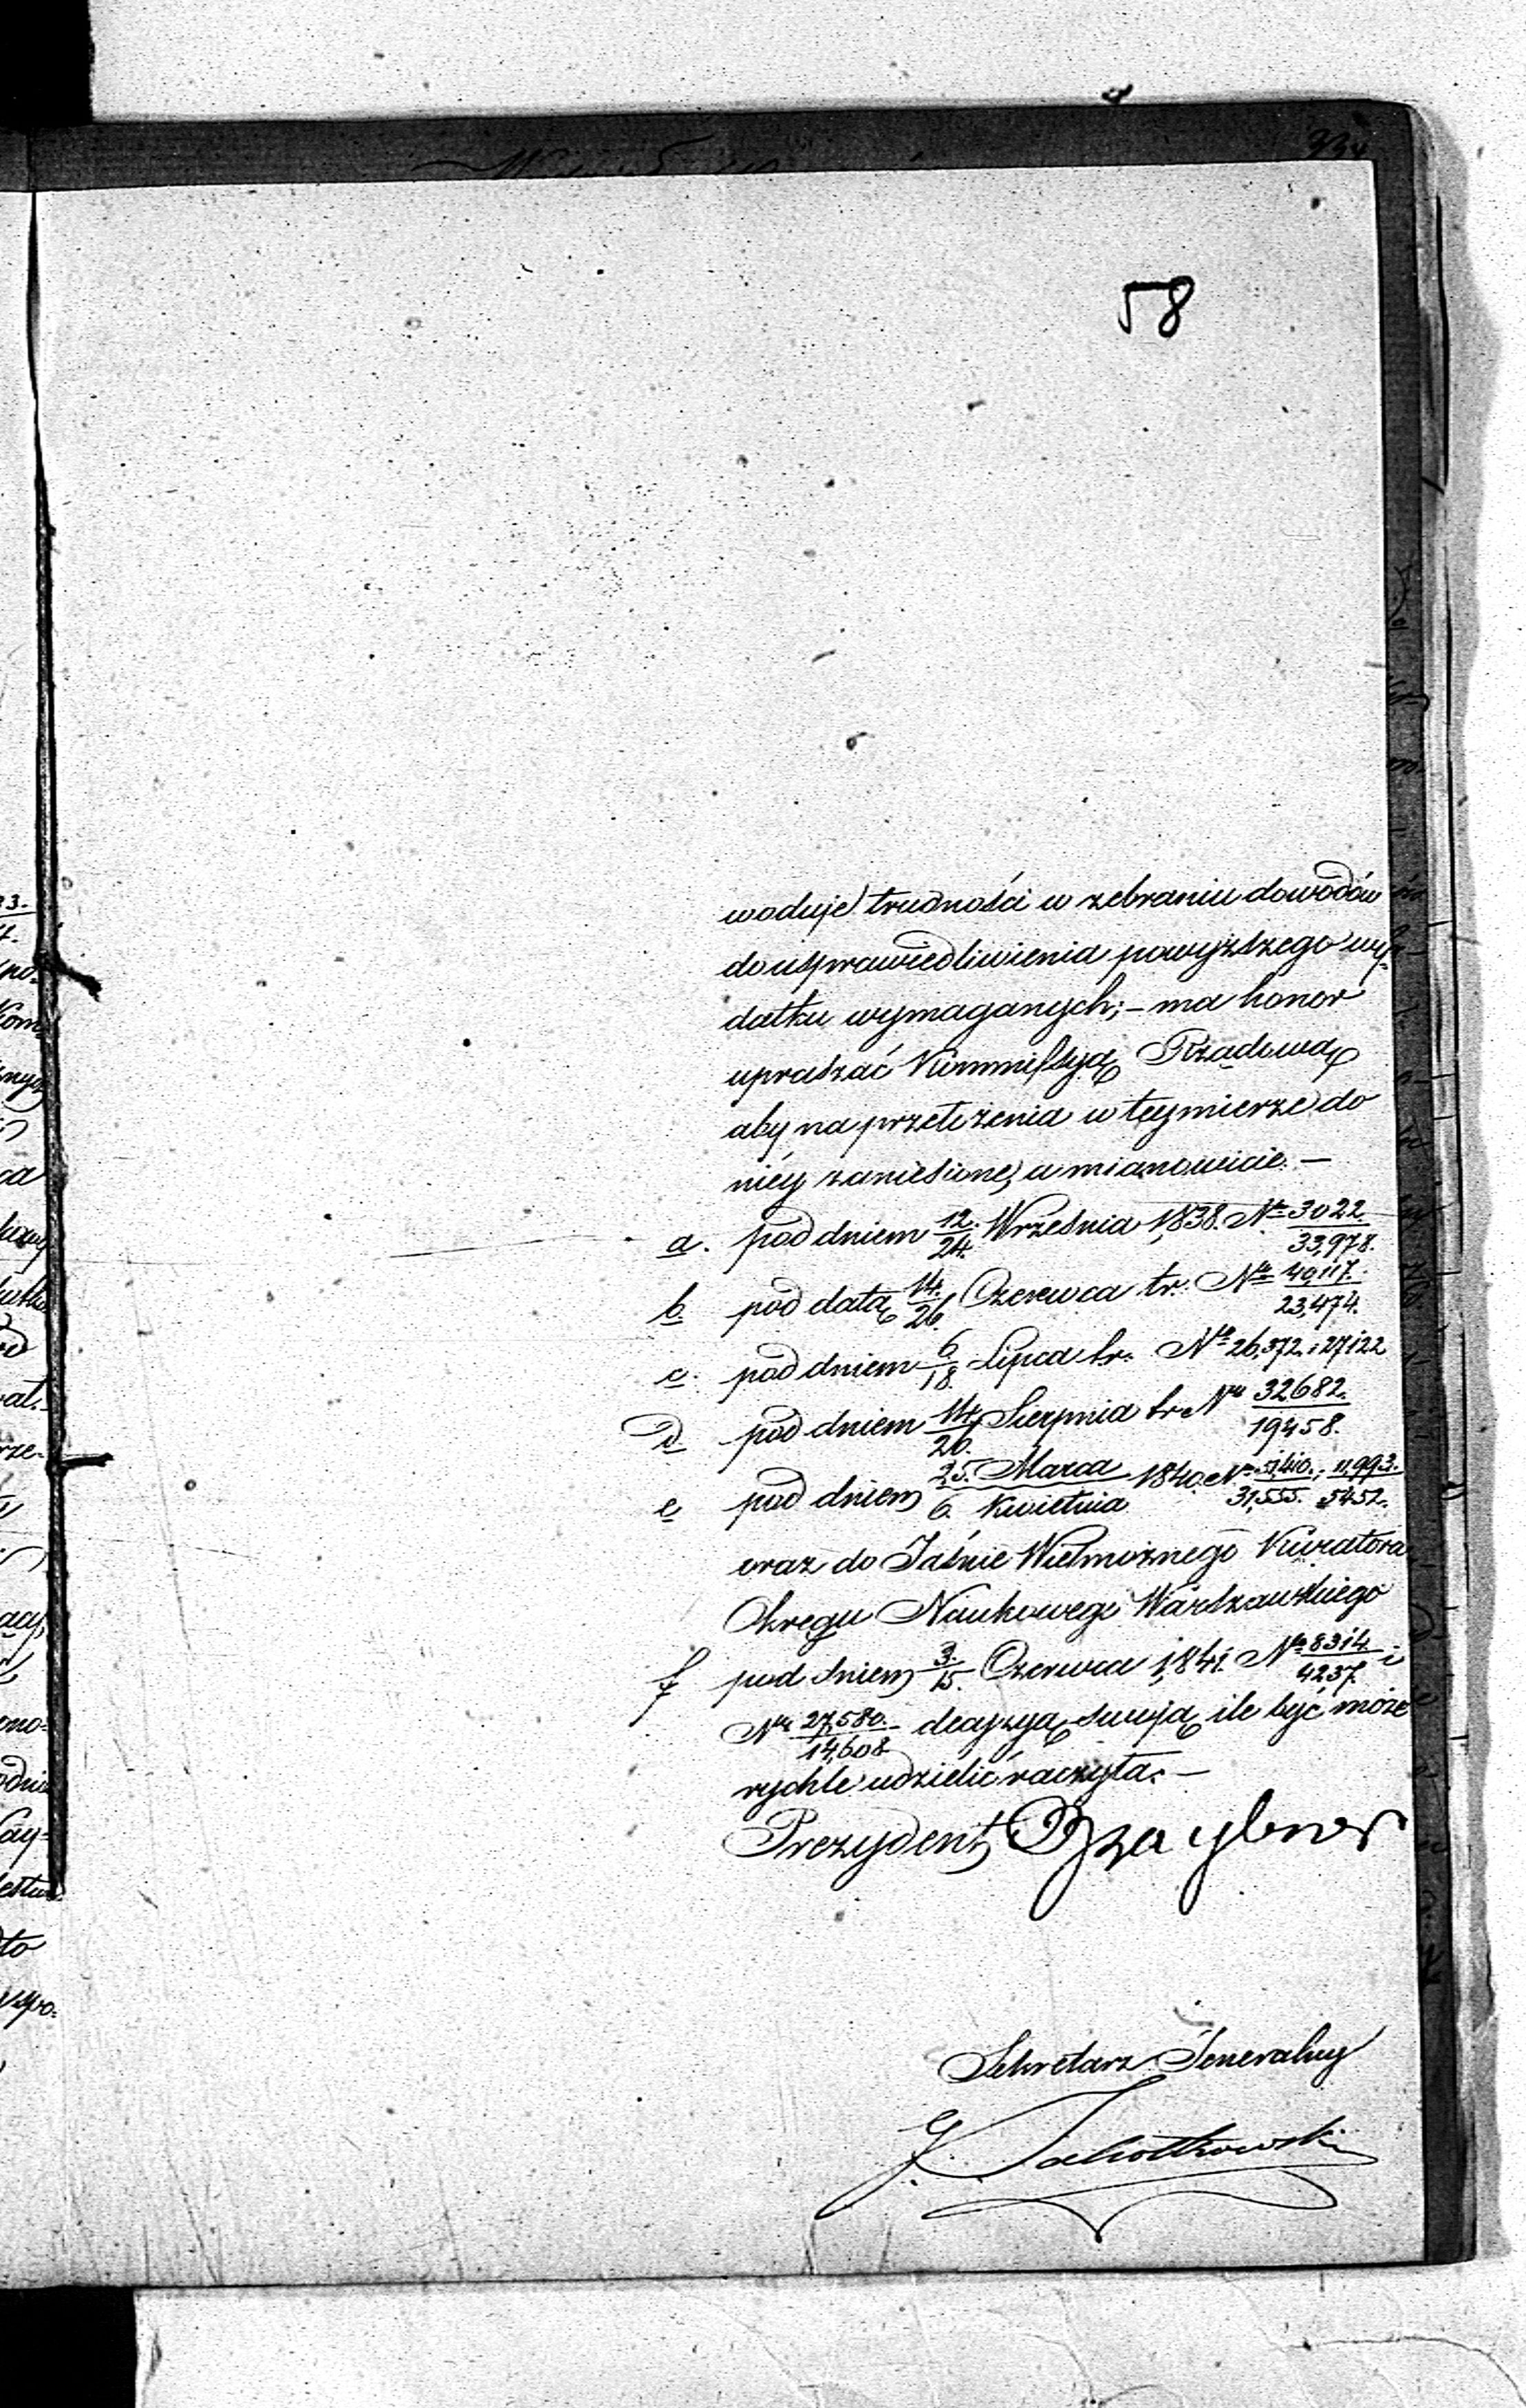 58
woduje trudności w zebraniu dowodów
do usprawiedliwienia powyższego wy-
datku wymaganych; – ma honor
upraszać Kommissyą Rządową
aby na przełożenia w tey mierze do
niéy zaniesione, a mianowicie. –
a. pod dniem 12./24. Września 1838. Nr 3022./33,978.
b. pod datą 14./26. Czerwca tr. Nr 40,117./23,474.
c. pod dniem 6/18. Lipca tr. Nr 26,372. i 27122
d pod dniem 14/26. Sierpnia tr. Nr 32682./19458.
e pod dniem 25. Marca/6. Kwietnia 1840. Nr 51,410./31,555. i 11,993./5452.
oraz do Jaśnie Wielmożnego Kuratora
Okręgu Naukowego Warszawskiego
f pod dniem 3./15. Czerwca 1841. Nr 8314./4237. i
Nr 27,580./14,608 decyzyą swoją ile być może
rychle udzielić raczyła. –
Prezydent
Sekretarz Jeneralny